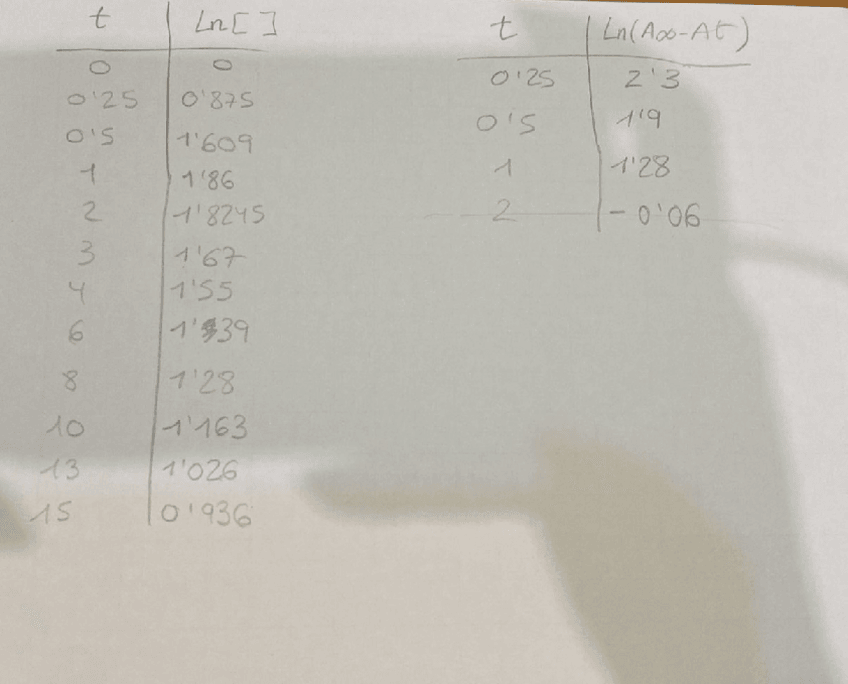 t Ln[ ]
0 0
0'25 0'875
0'5 1'609
1 1'86
2 1'8245
3 1'67
4 1'55
6 1'39
8 1'28
10 1'163
13 1'026
15 0'936
t Ln(A∞-At)
0'25 2'3
0'5 1'9
1 1'28
2 -0'06